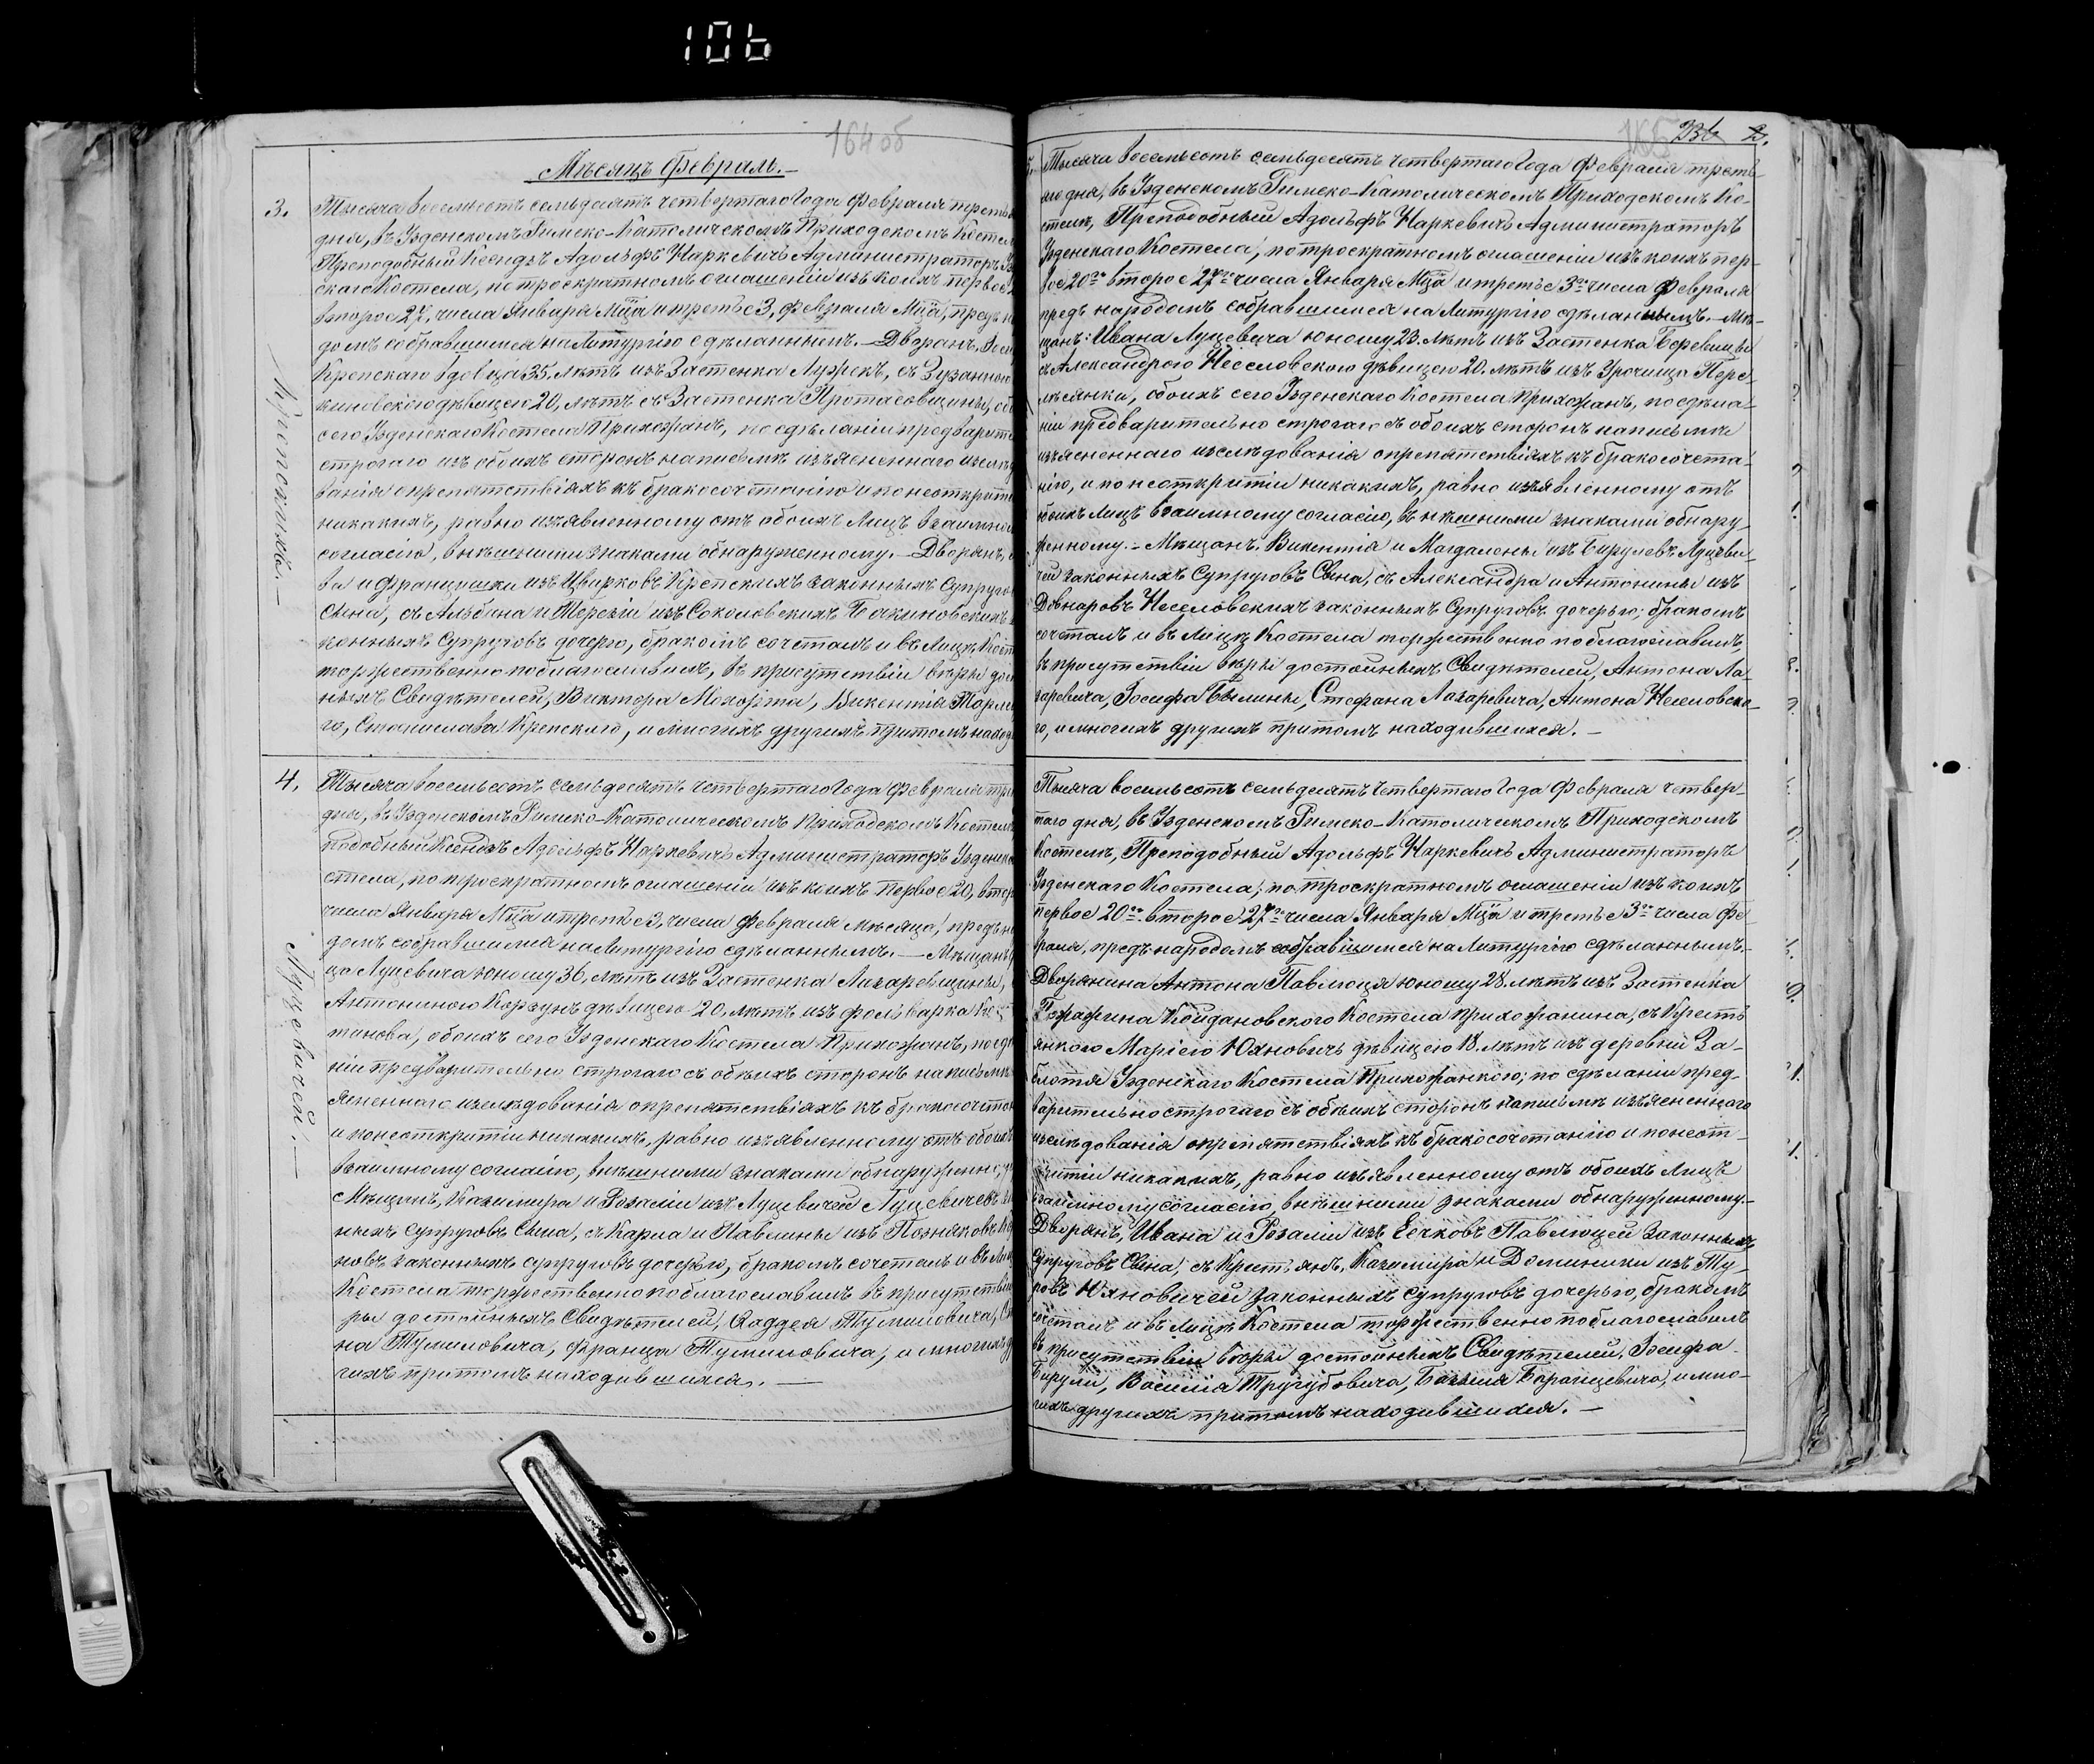 106
164 об
Мѣсяцъ Февраль.—
3.
Крепскихъ.—
Тысяча восемьсотъ семьдесятъ четвертаго Года Февраля треть
дня, въ Узденскомъ Римско-Католическомъ Приходскомъ Костел
Преподобный Ксендзъ Адольфъ Наркевичъ Администраторъ Уз
скаго Костела, по троекратномъ оглашеніи изъ коихъ первое
второе 27, числа Января Мца и третье 3, Февраля Мца, предъ н
домъ собравшимся на Литургію сдѣланнымъ.— Дворянъ,
Крепскаго вдовца 35. лѣтъ изъ Застенка Лужекъ, съ Зузанною
киновскою дѣвицею 20, лѣтъ съ Застенка Протасовщины, об
сего Узденскаго Костела Прихожанъ, по сдѣланіи предварите
строгаго изъ обоихъ сторонъ написьмѣ изъясненнаго изслѣд
ванія о препятствіяхъ къ бракосочетанію и по неоткрыті
никакихъ, равно изъявленному отъ обоихъ Лицъ взаимно
согласію, внѣшними знаками обнаруженному.— Дворянъ,
ва и Францишки изъ Цвирковъ Крепскихъ законныхъ Супруго
Сына, съ Альбина и Терезіи изъ Соколовскихъ Бакиновскихъ
конныхъ Супруговъ дочерю, бракомъ сочеталъ и въ Лицѣ Кост
торжественно поблагословилъ, въ присутствіи вѣры дост
ныхъ Свидѣтелей, Виктора Мохорта, Викентія
го, Станислава Крепскаго, и многихъ другихъ притомъ наход
4.
Луцевичей.—
Тысяча восемьсотъ семьдесятъ четвертаго Года Февраля тре
дня, въ Узденскомъ Римско-Католическомъ Приходскомъ Костел
подобный Ксендзъ Адольфъ Наркевичъ Администраторъ Узденска
стела, по троекратномъ оглашеніи изъ коихъ первое 20, втор
числа Января Мца и третье 3, числа Февраля мѣсяца, предъ н
домъ собравшимся на Литургію сдѣланнымъ.— Мѣщанъ
ца Луцевича юношу 36, лѣтъ изъ Застенка Лазаревщины,
Антониною Корзунъ дѣвицею 20. лѣтъ изъ фольварка
танова, обоихъ сего Узденскаго Костела Прихожанъ, по сд
ніи предварительно строгаго съ обѣихъ сторонъ написьмѣ
ясненнаго изслѣдованія о препятствіяхъ къ бракосочета
и по неоткрытіи никакихъ, равно изъявленному отъ обоихъ
взаимному согласію, внѣшними знаками обнаруженно,
Мѣщанъ, Казимира и Розаліи изъ Луцевичей Луцевичевъ
ныхъ супруговъ Сына, съ Карла и Павлины изъ Позняковъ
новъ законныхъ супруговъ дочерью, бракомъ сочеталъ и въ Ли
Костела торжественно поблагославилъ въ присутстві
ры достойныхъ Свидѣтелей, Фаддея Тумиловича,
на Тумиловича, Франца Тумиловича, и многихъ д
гихъ притомъ находившихся.—
165 336 2.
Тысяча восемьсотъ семьдесятъ четвертаго Года Февраля треть-
яго дня, въ Узденскомъ Римско-Католическомъ Приходскомъ Ко-
стелѣ, Преподобный Адольфъ Наркевичъ Администраторъ
Узденскаго Костела, по троекратномъ оглашеніи изъ коихъ пер-
вое 20го второе 27го числа Января Мца и третье 3го числа Февраля
предъ народомъ собравшимся на Литургію сдѣланнымъ.— Мѣ-
щанъ: Ивана Луцевича юношу 23. лѣтъ изъ Застенка
съ Александрою Неселовскою дѣвицею 20. лѣтъ изъ Урочища Пере-
лѣсянки, обоихъ сего Узденскаго Костела прихожанъ, по сдѣла-
ніи предварительно строгаго съ обоихъ сторонъ написьмѣ
изъясненнаго изслѣдованія о препятствіяхъ къ бракосочета-
нію, и по неоткрытіи никакихъ, равно изъявленному отъ
обоихъ лицъ взаимному согласію, внѣшними знаками обнару-
женному.— Мѣщанъ, Викентія и Магдалены изъ Бирулевъ Луцеви-
чей законныхъ Супруговъ Сына, съ Александра и Антонины изъ
Довнаровъ Неселовскихъ законныхъ Супруговъ дочерью; бракомъ
сочеталъ и въ Лицѣ Костела торжественно поблагославилъ,
въ присутствіи вѣры достойныхъ Свидѣтелей, Антона Ла-
заревича, Іосифа Былины, Стефана Лазаревича, Антона Неселовска-
го, и многихъ другихъ притомъ находившихся.—
Тысяча восемьсотъ семьдесятъ четвертаго Года Февраля четвер-
таго дня, въ Узденскомъ Римско-Католическомъ Приходскомъ
Костелѣ, Преподобный Адольфъ Наркевичъ Администраторъ
Узденскаго Костела, по троекратномъ оглашеніи изъ коихъ
первое 20го второе 27го числа Января Мца и третье 3го числа Фе-
враля, предъ народомъ собравшимся на Литургію сдѣланнымъ.—
Дворянина Антона Павлюця юношу 28. лѣтъ изъ Застенка
Койдановскаго Костела прихожанина, съ Кресть-
янкою Маріею Юхновичъ дѣвицею 18. лѣтъ изъ деревни За-
блотья Узденскаго Костела Прихожанкою; по сдѣланіи пред-
варительно строгаго съ обѣихъ сторонъ написьмѣ изъясненнаго
изслѣдованія о препятствіяхъ къ бракосочетанію и по неот-
крытіи никакихъ, равно изъявленному отъ обоихъ Лицъ
взаимному согласію, внѣшними знаками обнаруженному.—
Дворянъ, Ивана и Розаліи изъ Ечковъ Павлюцей Законныхъ
Супруговъ Сына, съ Крестьянъ, Казимира и Доминики изъ Ту-
ровъ Юхновичей законныхъ супруговъ дочерью, бракомъ
сочеталъ и въ Лицѣ Костела торжественно поблагославилъ
въ присутствіи вѣры достойныхъ Свидѣтелей, Іосифа
Бирули, Василія Тругубовича, Базыля Боранцевича, и мно-
гихъ другихъ притомъ находившихся.—